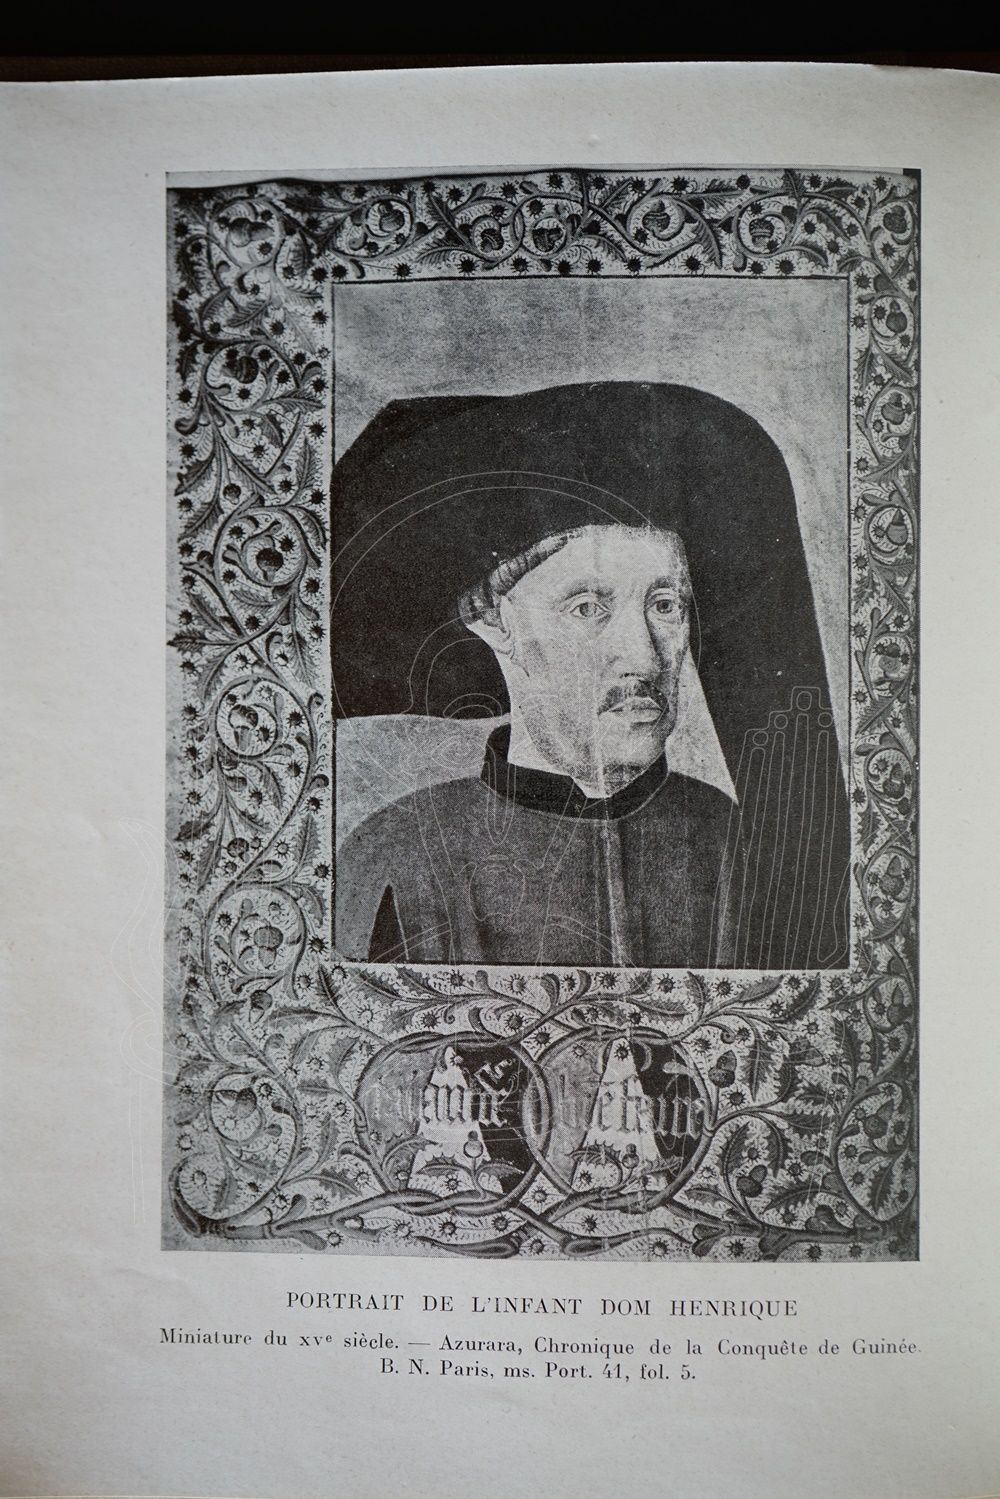 talant de bie fere
PORTRAIT DE L'INFANT DOM HENRIQUE
Miniature du XVe siècle. — Azurara, Chronique de la Conquête de Guinée.
B. N. Paris, ms. Port. 41, fol. 5.